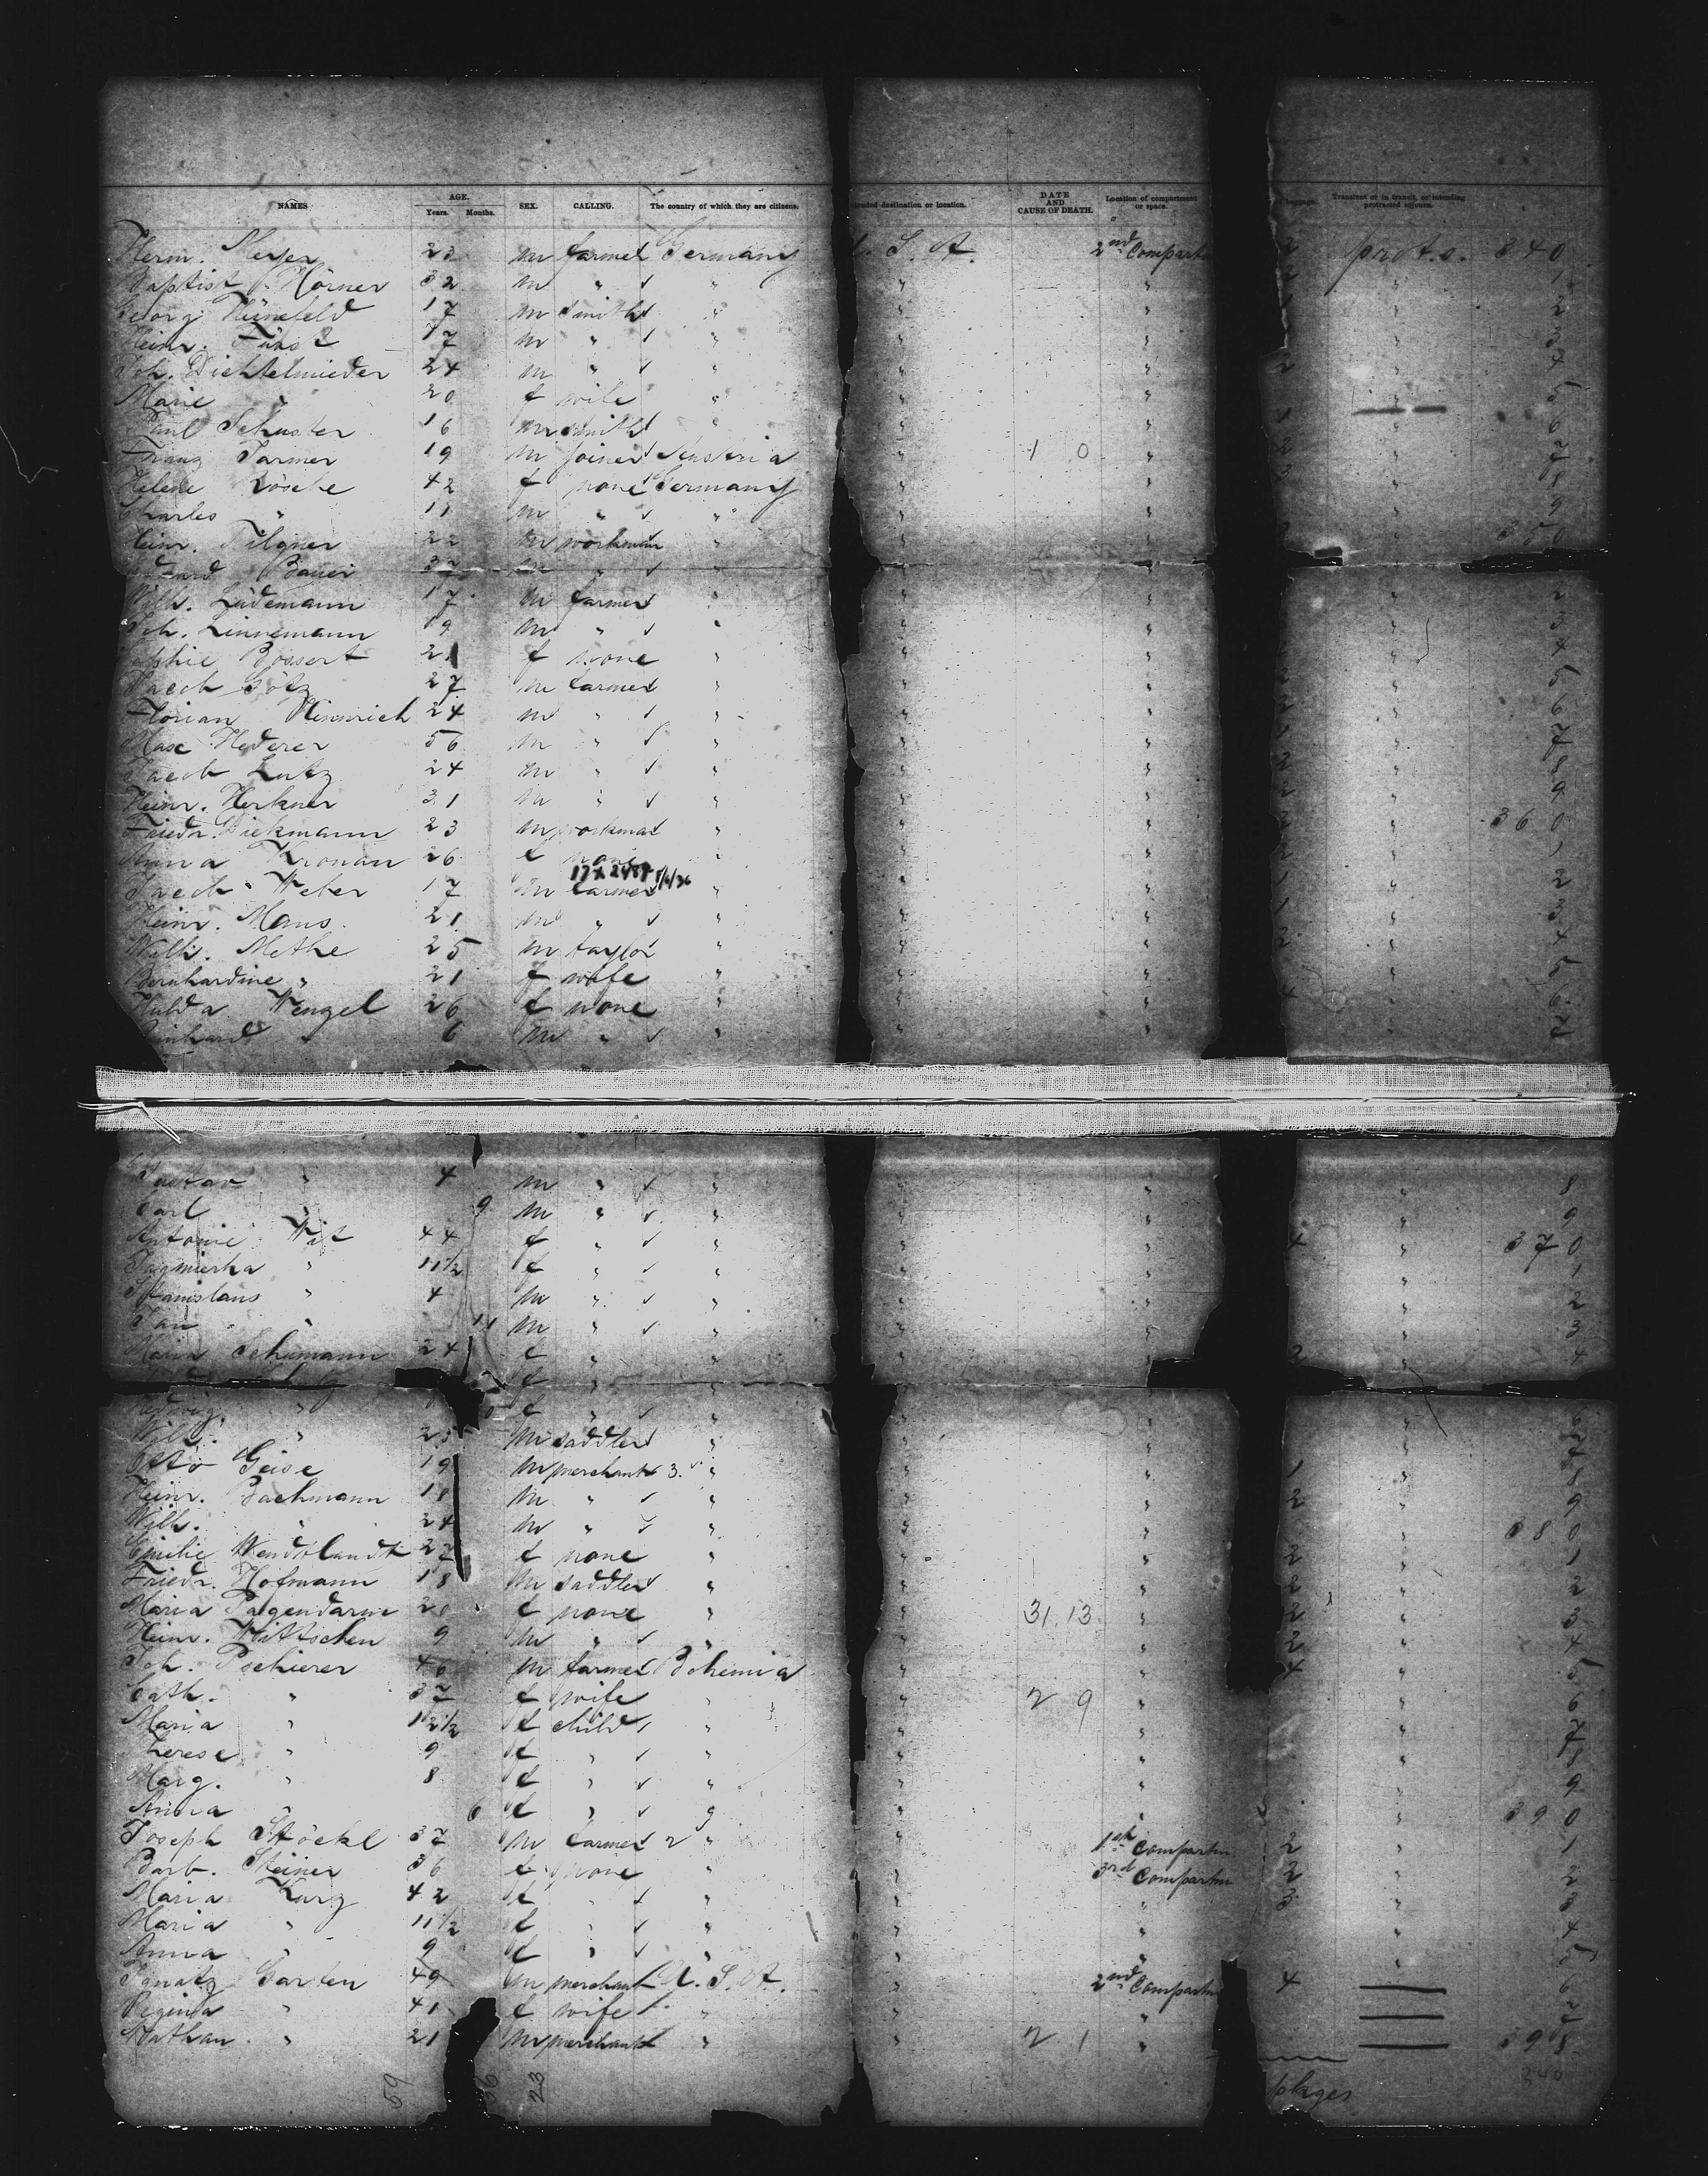 NAMES AGE. Years. Months. SEX. CALLING. The country of which they are citizens. destination or location. DATE AND CAUSE OF DEATH. Location of compartment or space. Transient or in transit, or intending protracted sojourn.
Herm. Meyer 23 m farmer Germany U. S. A. 2nd Compart 2 prot. s. 340
Baptist Hörner 32 m " " " " " 1
Georg Hünefeld 17 m smith " " " " 2
Heinr. 17 m " " " " " 3
Joh. Dichtelmieder 24 m " " " " 2 " 4
Marie " 20 f wife " " " 5
Paul Schuster 16 m smith " " " 1 6
Franz 19 m joiner Austria " 1 0 " 2 " 7
Helene Rösche 42 f none Germany " " 3 " 8
Charles " 11 m " " " " " 9
Heinr. Pilgner 22 m workman " " " " 350
Bauer 37 m " " " "
Wilh. Lüdemann 17 m farmer " " " " 2
Joh. Linnemann 19 m " " " " " 3
Sophie Bossert 21 f none " " " " 4
Jacob Götz 27 m farmer " " " " 5
Florian Himmrich 24 m " " " " " 6
Max Hederer 56 m " " " " " 7
Jacob Lutz 24 m " " " " " 8
Heinr. Herkner 31 m " " " " " 9
Friedr. Diekmann 23 m workman " " " " 360
Anna Kronau 26 f none " " " " 1
Jacob Weber 17 m farmer " " " 1 " 2
Heinr. Mans 21 m " " " " 1 " 3
Wilh. Methe 25 m taylor " " " 2 " 4
Bernhardine " 21 f wife " " " " 5
Hulda Wengel 26 f none " " " 4 " 6
" 6 m " " " " " 7
Gustav " 4 m " " " " " 8
Carl " 9 m " " " " " 9
Antonie Wit 44 f " " " " 4 " 370
" 11 1/2 f " " " " " 1
Stanislaus " 4 m " " " " " 2
Jan " 11 m " " " " " 3
Maria Schumann 24 f " " " " 2 " 4
Hedwig " f " " " " " 6
Wilh. " 25 m saddler " " " " 7
Otto Geise 19 m merchant 3. " " " 1 " 8
Heinr. Bachmann 18 m " " " " 2 " 9
Wilh. " 24 m " " " " " 380
Emilie Wendtlandt 27 f none " " " 2 " 1
Friedr. Hofmann 18 m saddler " " " 2 " 2
Maria Pagendarm 20 f none " " 31.13 " 2 " 3
Heinr. Wittschen 9 m " " " " 2 " 4
Joh. Pschierer 46 m farmer Bohemia " " 4 " 5
Cath. " 37 f wife " " 2 9 " " 6
Maria " 12 1/2 f child " " " " 7
Therese " 9 f " " " " " 8
Marg. " 8 f " " " " " 9
Anna " 6 f " " " " " 390
Joseph Stöckl 37 m farmer 2 " " 1st Compartm 2 " 1
Barb. Steiner 36 f none " " 3rd Compartm 2 " 2
Maria Kurz 42 f " " " " 3 " 3
Maria " 11 1/2 f " " " " " 4
Anna " 9 f " " " " " 5
Ignatz Garten 49 m merchant U. S. A. " 2nd Compartm 4 6
Regina " 41 f wife " " " 7
Nathan " 21 m merchant " " 2 1 " 398
59 36 23 pkges 340